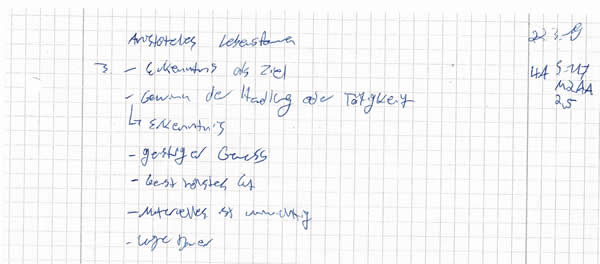 Aristoteles Lebensformen 22.3.19
3. - Erkenntnis als Ziel 4A S. 117
- Gewinn der Handlung oder Tätigkeit M2AA
↳ Erkenntnis 2,5
- geistiger Genuss
- Gut
- Materielles ist unwichtig
- lange Dauer